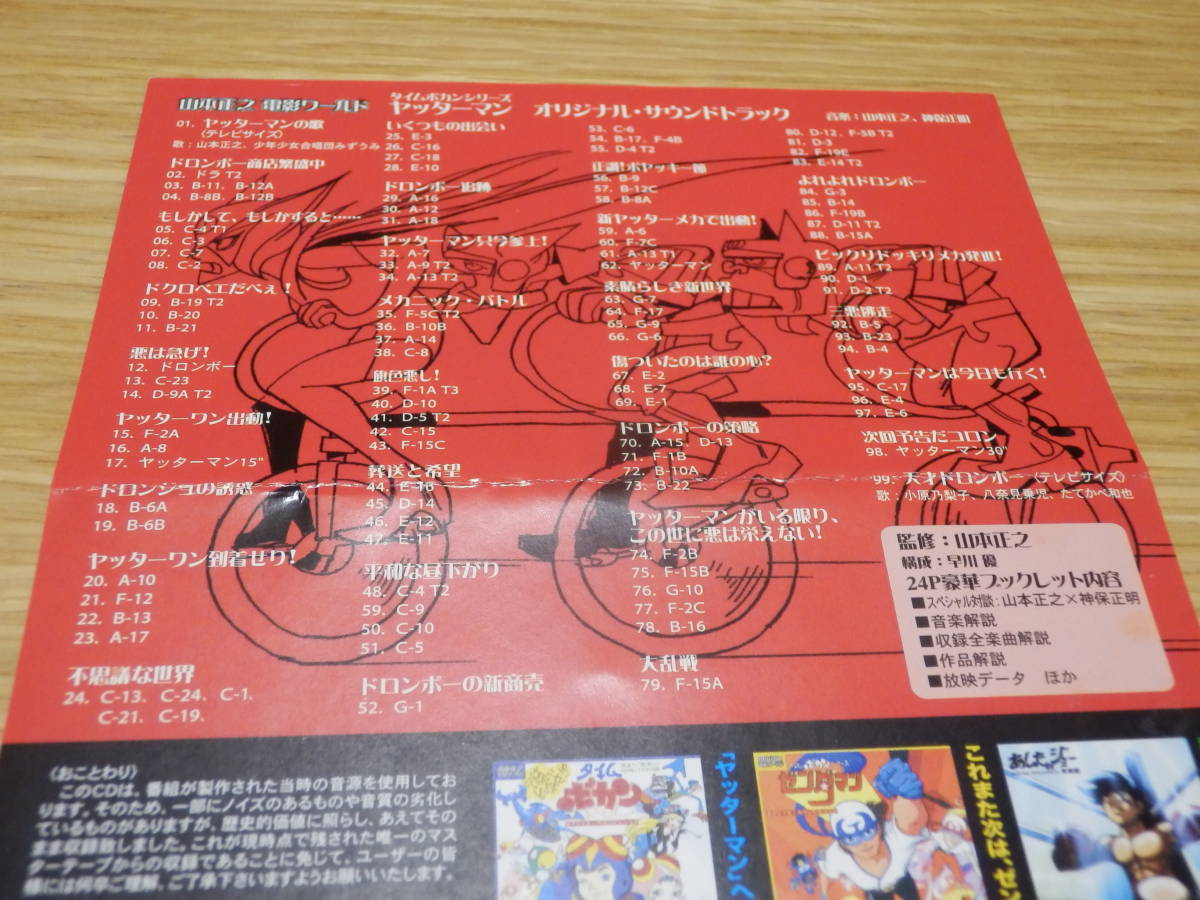 山本正之 電影ワールド
タイムボカンシリーズ
ヤッターマン オリジナル・サウンドトラック
音楽：山本正之、神保正明
01. ヤッターマンの歌
〈テレビサイズ〉
歌：山本正之、少年少女合唱団みずうみ
ドロンボー商店繁盛中
02. ドラ T2
03. B-11、B-12A
04. B-8B、B-12B
もしかして、もしかすると……
05. C-4 T1
06. C-3
07. C-7
08. C-2
ドクロベエだべぇ！
09. B-19 T2
10. B-20
11. B-21
悪は急げ！
12. ドロンボー
13. C-23
14. D-9A T2
ヤッターワン出動！
15. F-2A
16. A-8
17. ヤッターマン15"
ドロンジョの誘惑
18. B-6A
19. B-6B
ヤッターワン到着せり！
20. A-10
21. F-12
22. B-13
23. A-17
不思議な世界
24. C-13、C-24、C-1、
C-21、C-19、
いくつもの出会い
25. E-3
26. C-16
27. C-18
28. E-10
ドロンボー追跡
29. A-16
30. A-12
31. A-18
ヤッターマン只今参上！
32. A-7
33. A-9 T2
34. A-13 T2
メカニック・バトル
35. F-5C T2
36. B-10B
37. A-14
38. C-8
旗色悪し！
39. F-1A T3
40. D-10
41. D-5 T2
42. C-15
43. F-15C
葬送と希望
44. E-13
45. D-14
46. E-12
47. E-11
平和な昼下がり
48. C-4 T2
59. C-9
50. C-10
51. C-5
ドロンボーの新商売
52. G-1
53. C-6
54. B-17、F-4B
55. D-4 T2
正調！ボヤッキー節
56. B-9
57. B-12C
58. B-8A
新ヤッターメカで出動！
59. A-6
60. F-7C
61. A-13 T1
62. ヤッターマン
素晴らしき新世界
63. G-7
64. F-17
65. G-9
66. G-6
傷ついたのは誰の心？
67. E-2
68. E-7
69. E-1
ドロンボーの策略
70. A-15、D-13
71. F-1B
72. B-10A
73. B-22
ヤッターマンがいる限り、
この世に悪は栄えない！
74. F-2B
75. F-15B
76. G-10
77. F-2C
78. B-16
大乱戦
79. F-15A
80. D-12、F-5B T2
81. D-3
82. F-19E
83. E-14 T2
よれよれドロンボー
84. G-3
85. B-14
86. F-19B
87. D-11 T2
88. B-15A
ビックリドッキリメカ発進！
89. A-11 T2
90. D-1
91. D-2 T2
三悪逃走
92. B-5
93. B-23
94. B-4
ヤッターマンは今日も行く！
95. C-17
96. E-4
97. E-6
次回予告だコロン
98. ヤッターマン30"
99. 天才ドロンボー〈テレビサイズ〉
歌：小原乃梨子、八奈見乗児、たてかべ和也
監修：山本正之
構成：早川 優
24P豪華ブックレット内容
■スペシャル対談：山本正之×神保正明
■音楽解説
■収録全楽曲解説
■作品解説
■放映データ ほか
〈おことわり〉
このCDは、番組が製作された当時の音源を使用してお
ります。そのため、一部にノイズのあるものや音質の劣化し
ているものがありますが、歴史的価値に照らし、あえてその
まま収録致しました。これが現時点で残された唯一のマス
ターテープからの収録であることに免じて、ユーザーの皆
様には何卒ご理解、ご了承下さいますようお願いいたします。
タイム
ボカン
「ヤッターマン」へ
ゼンダマン
これまた次は、ゼン
あしたのジョー